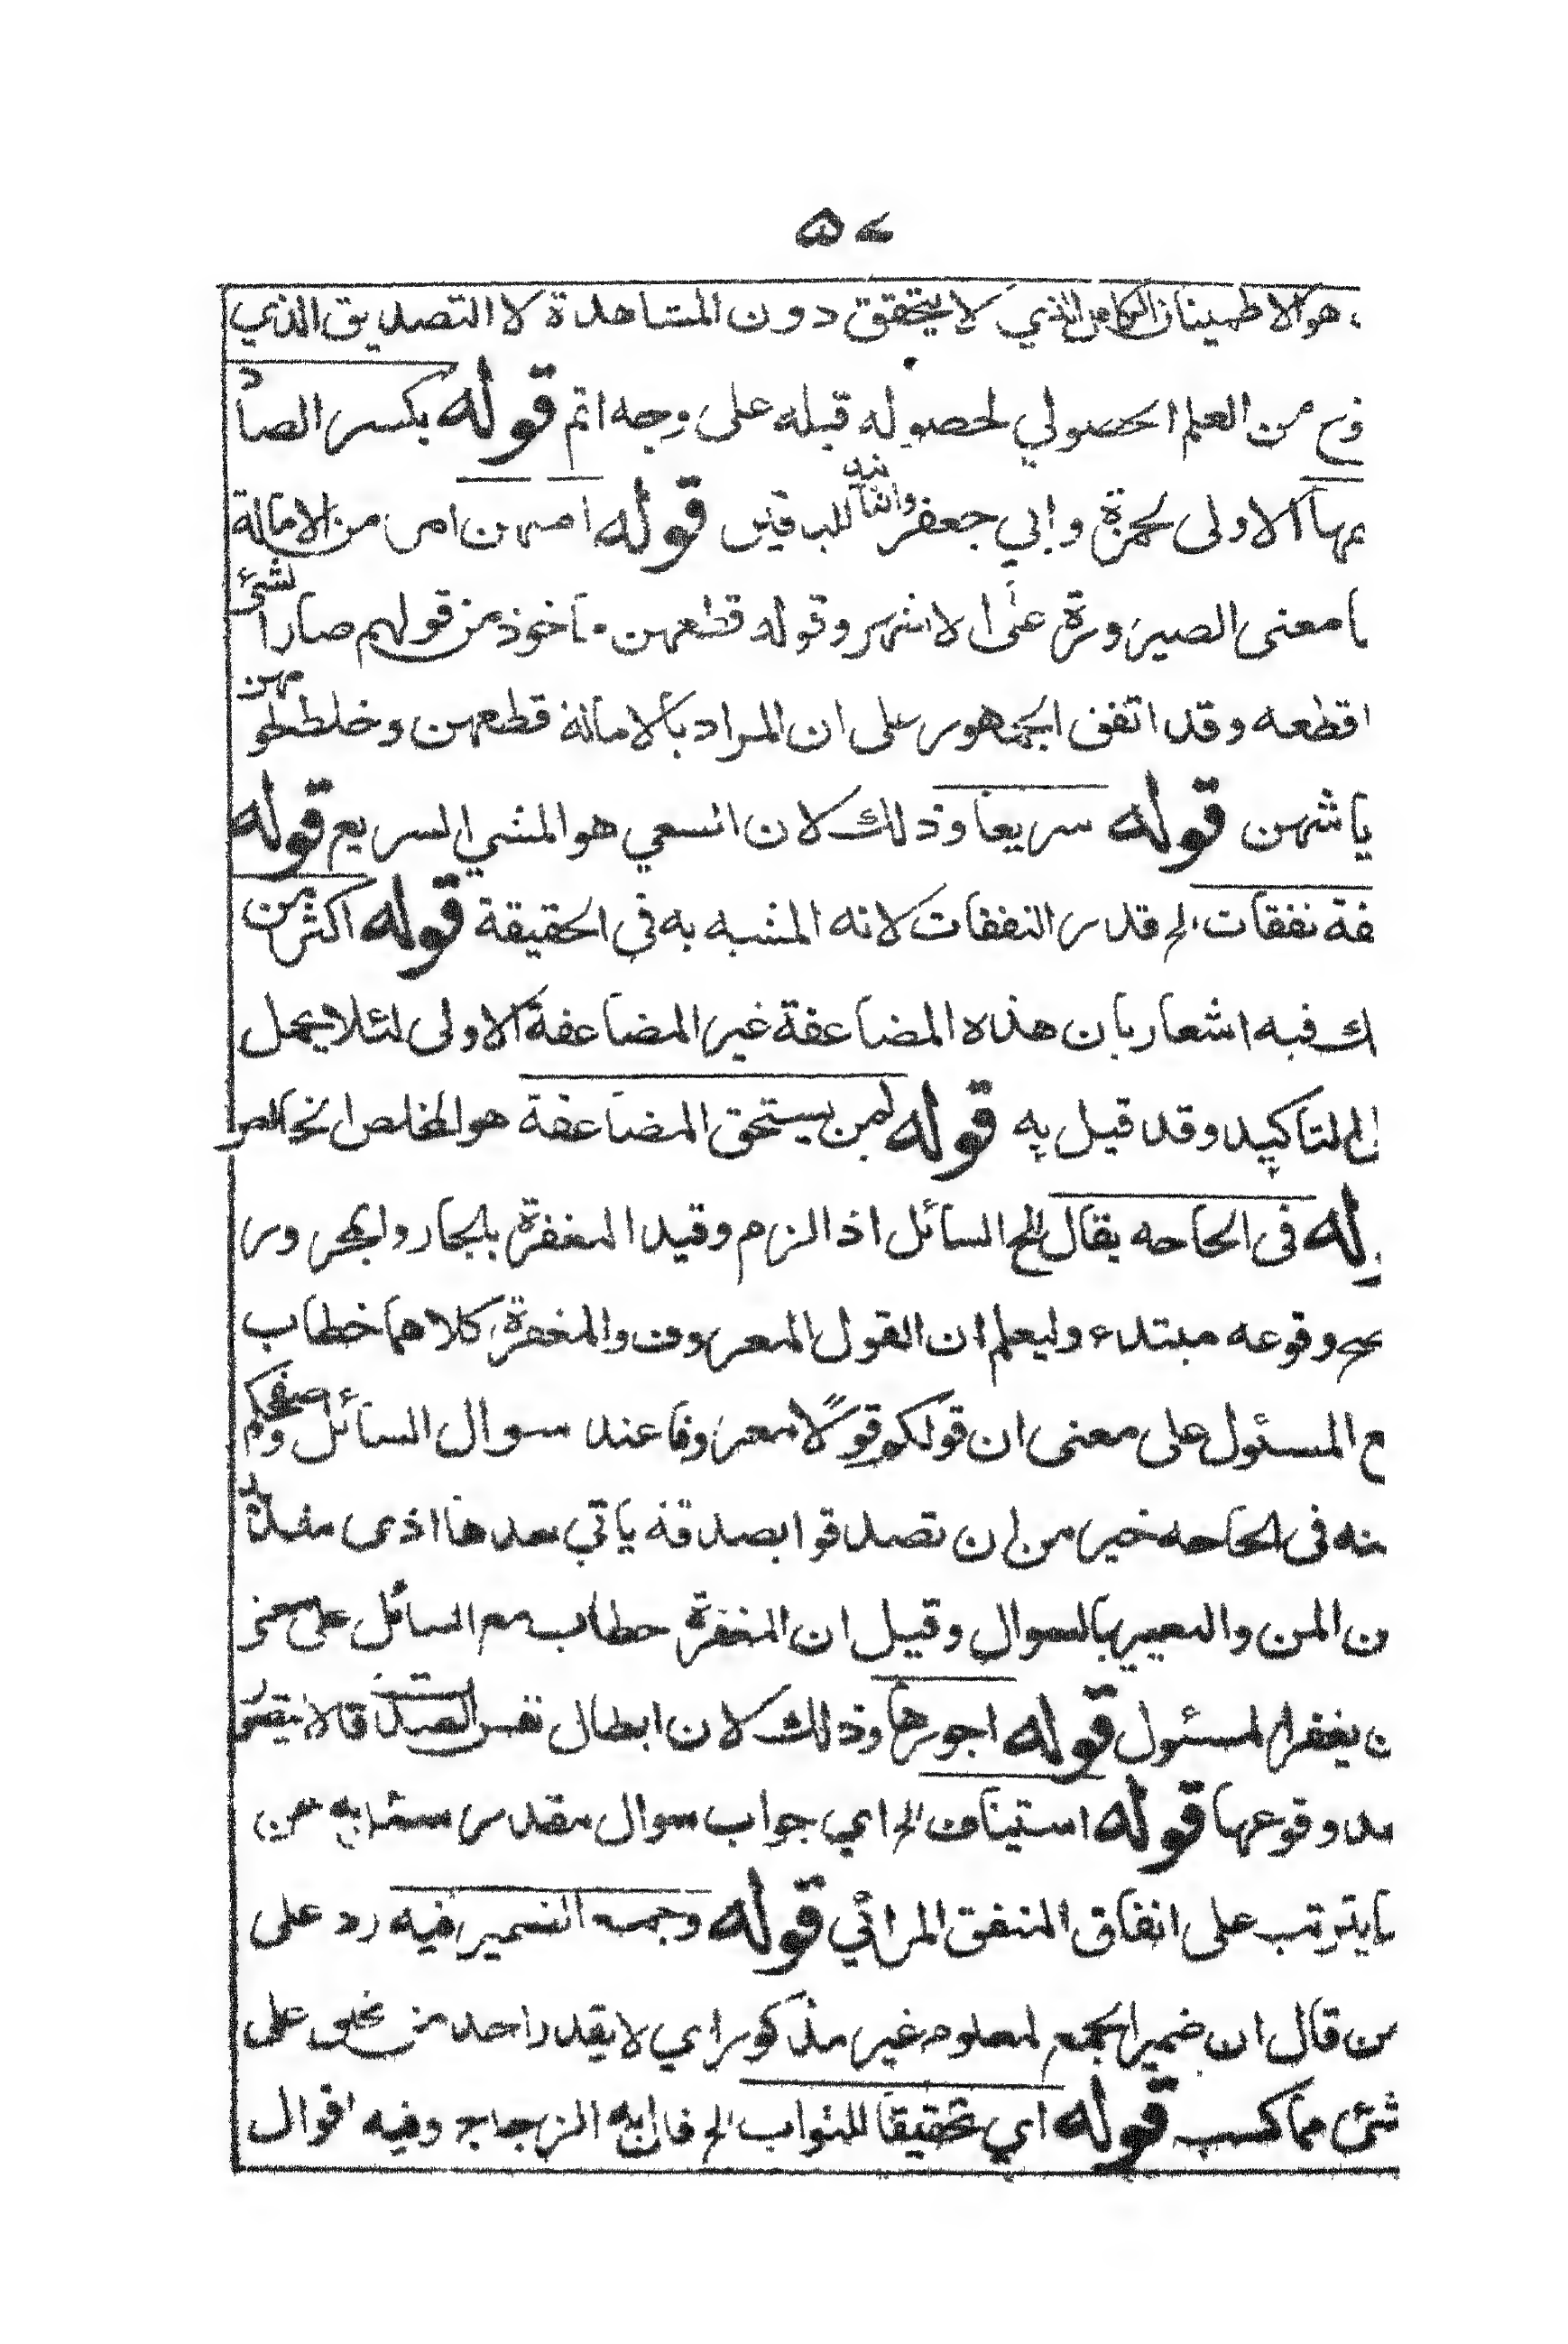 ۵۷
هو الاطمينان الكامل الذي لا يتحقق دون المشاهدة لا التصديق الذي
من العلم الحصولي لحصوله قبله على وجه اتم قوله بكسر الصاد
الاولى لحمزة وابي جعفر والثا للباقين قوله امرمن الامالة
معنى الصيرورة على الاشهر وقوله قطعهن مأخوذ من قولهم صار الشئ
اقطعه وقد اتفق الجمهور على ان المراد بالامالة قطعهن وخلط لحومهن
ياشهن قوله سريعا وذلك لان السعي هو المشي السريع قوله
فة نفقات الخ قدر النفقات لانه المشبه به في الحقيقة قوله اكثر من
ك فيه اشعار بان هذه المضاعفة غير المضاعفة الاولى لئلا يحمل
التاكيد وقد قيل به قوله لمن يستحق المضاعفة هو المخلص الخالص
له في الحاحه يقال الح السائل اذا لزم وقيد المغفرة بالجار والمجرور
ح وقوعه مبتدء وليعلم ان القول المعروف والمغفرة كلاهما خطاب
ع المسئول على معنى ان قولكم قولًا معروفا عند سوال السائل وصفحكم
عنه في الحاحه خير من ان تصدقوا بصدقة يأتي بعدها اذى
ن المن والتعيير بالسوال وقيل ان المغفرة خطاب مع السائل على معنى
ن يغفر المسئول قوله اجورها وذلك لان ابطال نفس الصدقة
وقوعها قوله استيناف الخ اي جواب سوال مقدر
يترتب على انفاق المنفق المرائي قوله وجمع الضمير فيه رد على
من قال ان ضمير الجمع لمعلوم غير مذكور اي لا يقدر احد على
شئ مما كسب قوله اي تحقيقا للثواب الخ قاله الزجاج وفيه اقوال